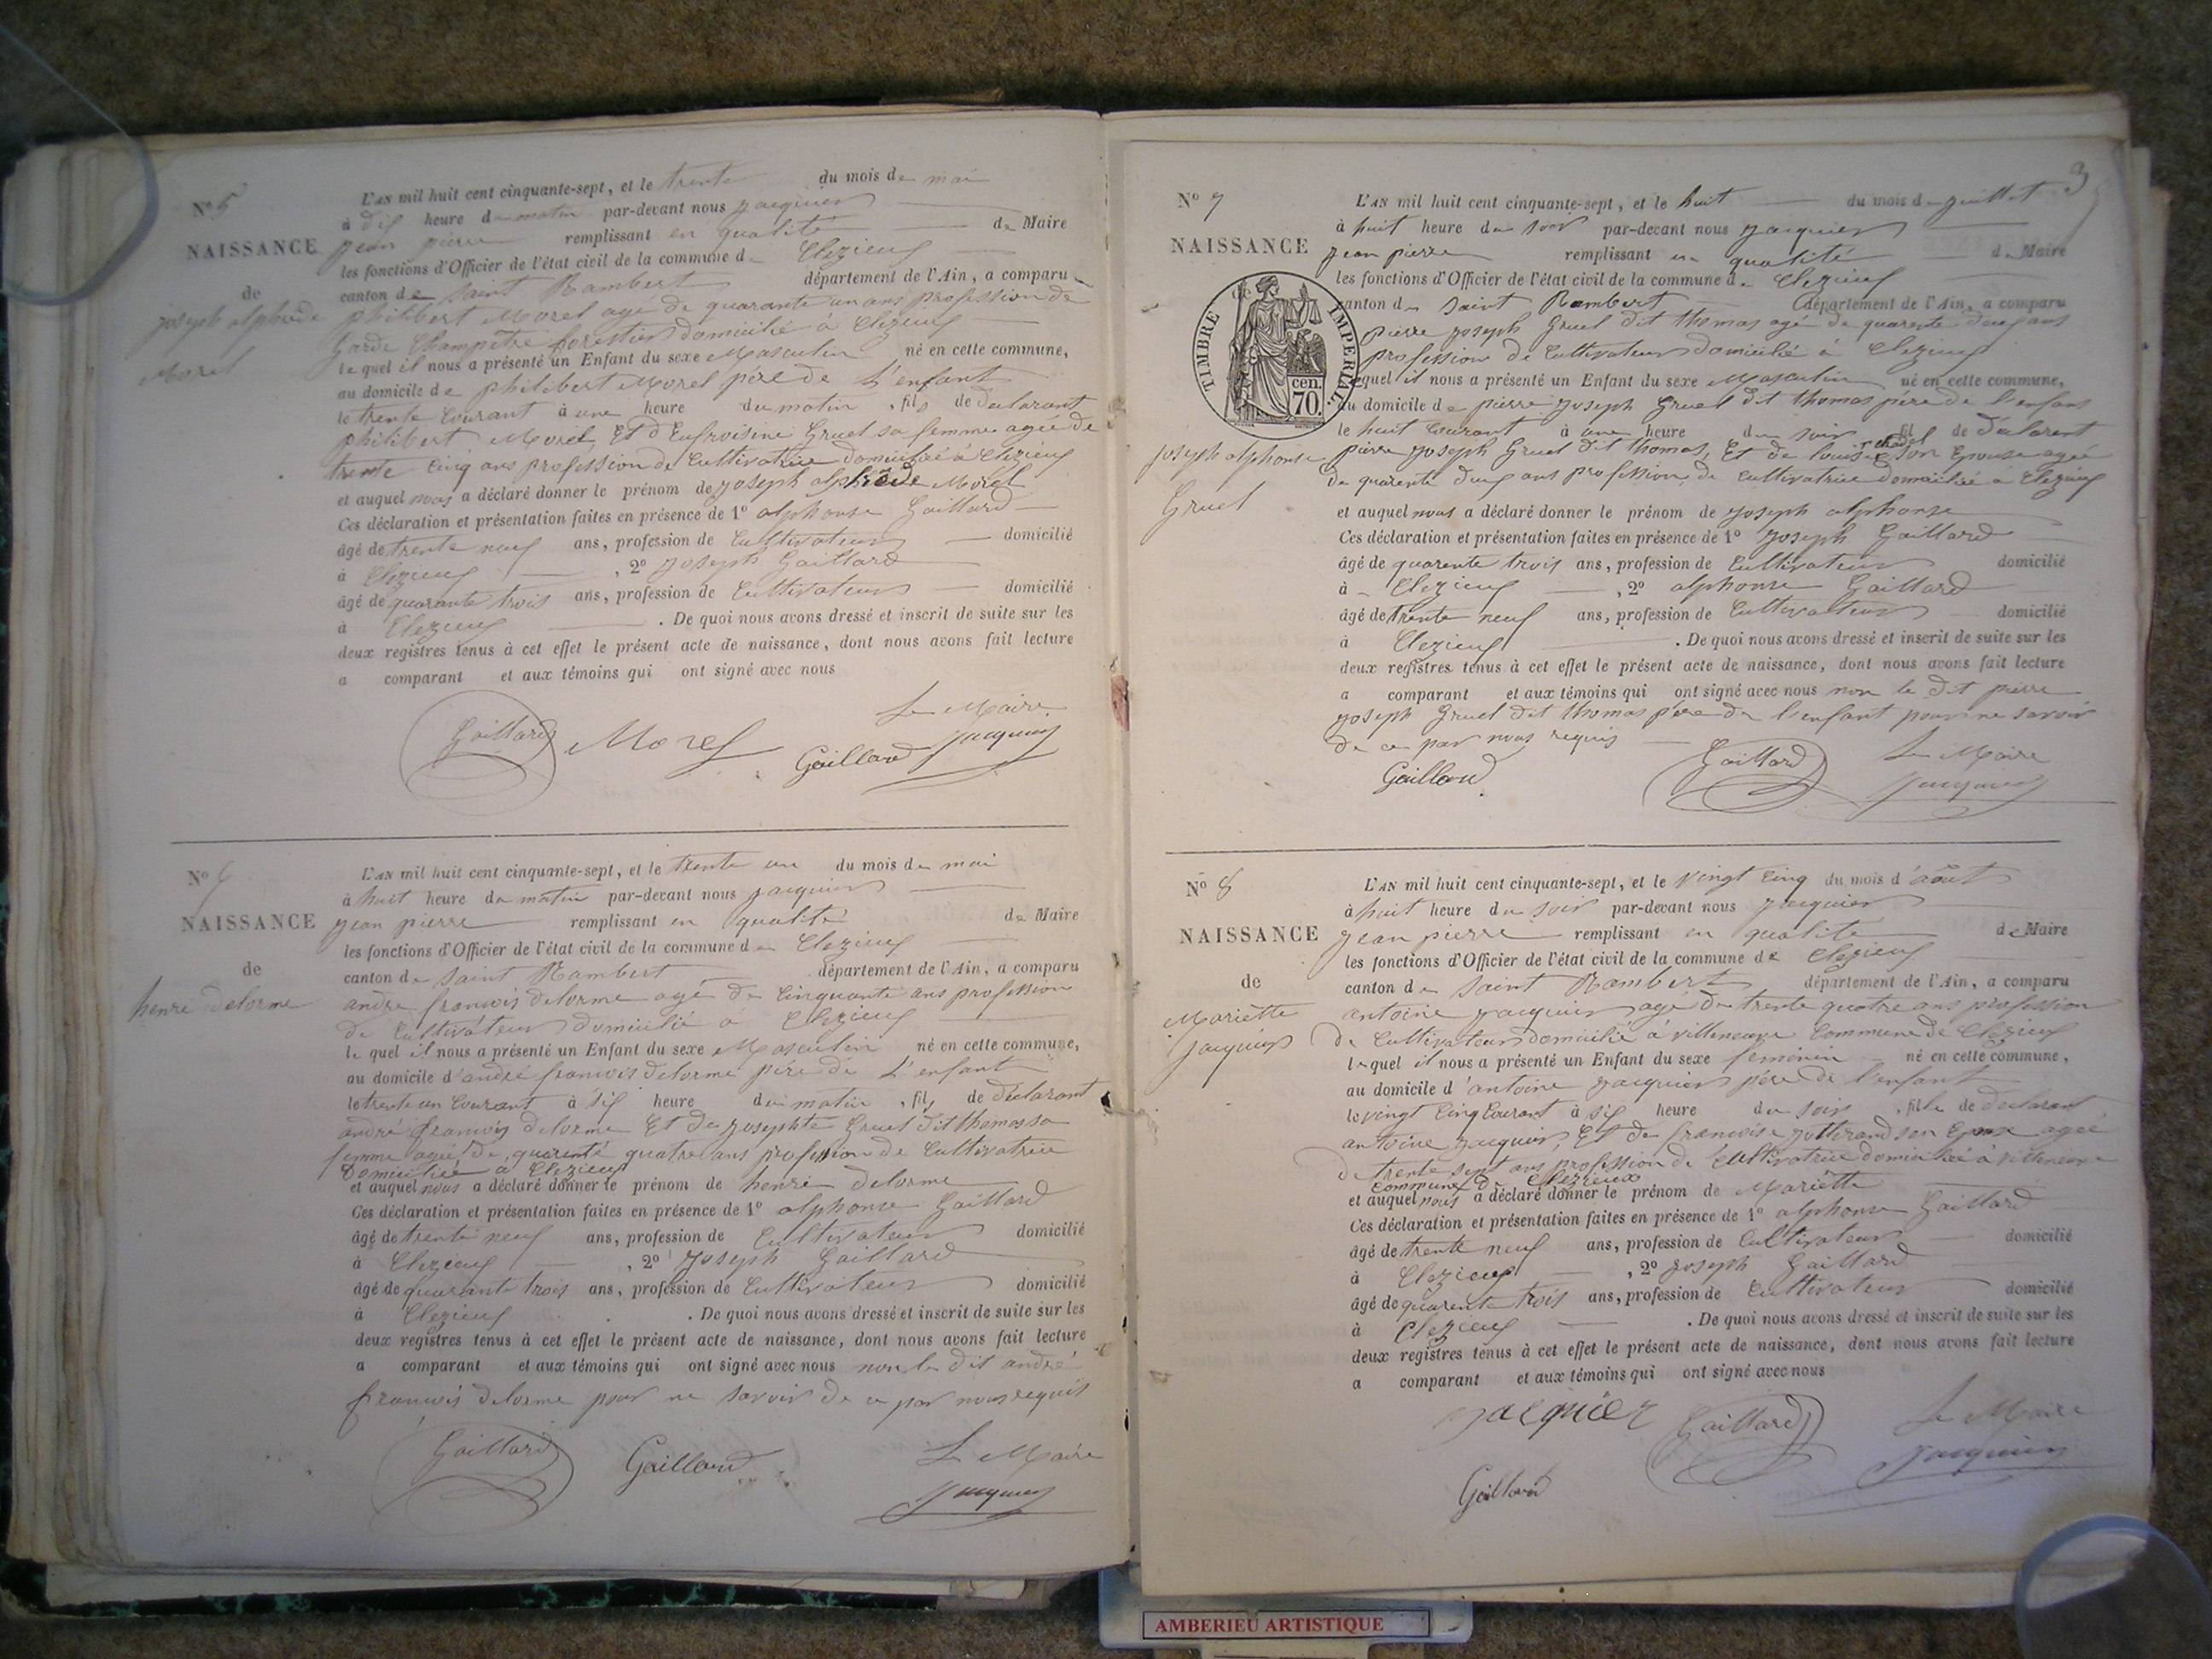 N° 5
NAISSANCE
de
joseph alphède
Morel
L'AN mil huit cent cinquante-sept, et le trente du mois de mai
à dix heure du matin par-devant nous jacquier
jean pierre remplissant en qualité de Maire
les fonctions d'Officier de l'état civil de la commune de Clezieux
canton de saint Rambert département de l'Ain, a comparu
philibert Morel agé de quarante un ans profession de
Garde Champêtre forestier domicilié à Clezieux
le quel il nous a présenté un Enfant du sexe Masculin né en cette commune,
au domicile de philibert Morel père de L'enfant
le trente Courant à une heure du matin, fils de declarant
philibert Morel Et d'Eufroisine Gruel sa femme agée de
trente Cinq ans profession de Cultivatrice domiciliée à Clezieux
et auquel nous a déclaré donner le prénom de joseph alphède Morel
Ces déclaration et présentation faites en présence de 1° alphonse Gaillard
âgé de trente neuf ans, profession de Cultivateur domicilié
à Clezieux, 2° joseph Gaillard
âgé de quarante trois ans, profession de Cultivateur domicilié
à Clezieux. De quoi nous avons dressé et inscrit de suite sur les
deux registres tenus à cet effet le présent acte de naissance, dont nous avons fait lecture
a comparant et aux témoins qui ont signé avec nous
Le Maire
Gaillard Morel Gaillard jacquier
N° 6
NAISSANCE
de
henri delorme
L'AN mil huit cent cinquante-sept, et le trente un du mois de mai
à huit heure du matin par-devant nous jacquier
jean pierre remplissant en qualité de Maire
les fonctions d'Officier de l'état civil de la commune de Clezieux
canton de saint Rambert département de l'Ain, a comparu
andre francois delorme agé de Cinquante ans profession
de Cultivateur domicilié à Clezieux
le quel il nous a présenté un Enfant du sexe Masculin né en cette commune,
au domicile d'andré francois delorme père de L'enfant
le trente un Courant à six heure du matin, fils de déclarant
andré francois delorme Et de josephte Gruel dit thomas sa
femme agée de quarente quatre ans profession de Cultivatrice
Domiciliée à Clezieux
et auquel nous a déclaré donner le prénom de henri delorme
Ces déclaration et présentation faites en présence de 1° alphonse Gaillard
âgé de trente neuf ans, profession de Cultivateur domicilié
à Clezieux, 2° joseph Gaillard
âgé de quarante trois ans, profession de Cultivateur domicilié
à Clezieux. De quoi nous avons dressé et inscrit de suite sur les
deux registres tenus à cet effet le présent acte de naissance, dont nous avons fait lecture
a comparant et aux témoins qui ont signé avec nous non le dit andré
francois delorme pour ne savoir de ce par nous requis
Gaillard Gaillard Le Maire
jacquier
3
N° 7
NAISSANCE
de
TIMBRE IMPERIAL
cen.
70.
joseph alphonse
Gruel
L'AN mil huit cent cinquante-sept, et le huit du mois de juillet
à huit heure du soir par-devant nous jacquier
jean pierre remplissant en qualité de Maire
les fonctions d'Officier de l'état civil de la commune de Clezieux
canton de saint Rambert département de l'Ain, a comparu
pierre joseph Gruel dit thomas agé de quarente deux ans
profession de Cultivateur domicilié à Clezieux
lequel il nous a présenté un Enfant du sexe Masculin né en cette commune,
au domicile de pierre joseph Gruel dit thomas père de l'enfant
le huit Courant à une heure du soir fil de declarent
pierre joseph Gruel dit thomas, Et de louise son Epouse agée
de quarente deux ans profession de Cultivatrice domiciliée à Clezieux
et auquel nous a déclaré donner le prénom de joseph alphonse
Ces déclaration et présentation faites en présence de 1° joseph Gaillard
âgé de quarente trois ans, profession de Cultivateur domicilié
à Clezieux, 2° alphonse Gaillard
âgé de trente neuf ans, profession de Cultivateur domicilié
à Clezieux. De quoi nous avons dressé et inscrit de suite sur les
deux registres tenus à cet effet le présent acte de naissance, dont nous avons fait lecture
a comparant et aux témoins qui ont signé avec nous non le dit pierre
joseph Gruel dit thomas père de l'enfant pour ne savoir
de ce par nous requis
Gaillard Gaillard Le Maire
jacquier
N° 8
NAISSANCE
de
Mariette
jacquier
L'AN mil huit cent cinquante-sept, et le vingt Cinq du mois d'août
à huit heure du soir par-devant nous jacquier
jean pierre remplissant en qualité de Maire
les fonctions d'Officier de l'état civil de la commune de Clezieux
canton de saint Rambert département de l'Ain, a comparu
antoine jacquier agé de trente quatre ans profession
de Cultivateur domicilié à villeneuve Commune de Clezieux
lequel il nous a présenté un Enfant du sexe feminin né en cette commune,
au domicile d'antoine jacquier père de l'enfant
le vingt Cinq Courant à six heure du soir, fille de declarant
antoine jacquier, Et de francoise jotterand son Epouse agee
de trente sept ans profession de Cultivatrice domiciliée à villeneuve
Commune de Clezieux
et auquel nous a déclaré donner le prénom de Mariette
Ces déclaration et présentation faites en présence de 1° alphonse Gaillard
âgé de trente neuf ans, profession de Cultivateur domicilié
à Clezieux, 2° joseph Gaillard
âgé de quarente trois ans, profession de Cultivateur domicilié
à Clezieux. De quoi nous avons dressé et inscrit de suite sur les
deux registres tenus à cet effet le présent acte de naissance, dont nous avons fait lecture
a comparant et aux témoins qui ont signé avec nous
jacquier Gaillard Le Maire
Gaillard jacquier
AMBERIEU ARTISTIQUE